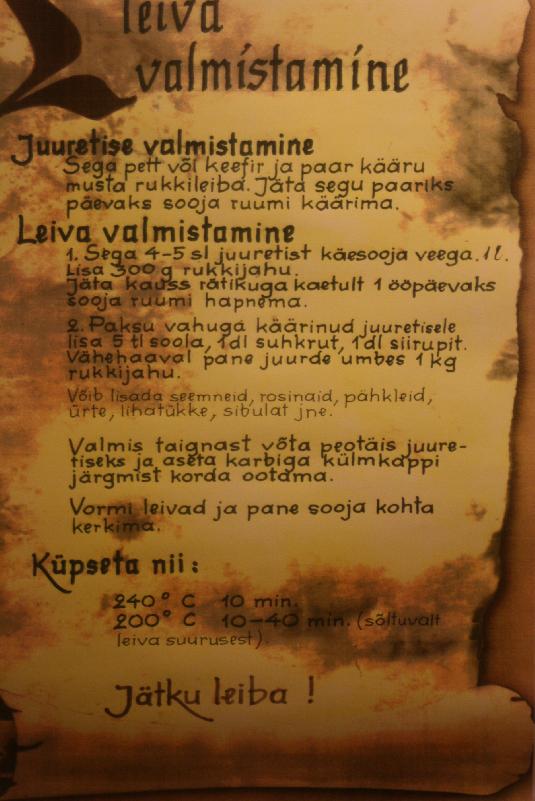 leiva
valmistamine
Juuretise valmistamine
Sega pett või keefir ja paar kääru
musta rukkileiba. Jäta segu paariks
päevaks sooja ruumi käärima.
Leiva valmistamine
1. Sega 4-5 sl juuretist käesooja veega. 1 l.
Lisa 300 g rukkijahu.
Jäta kauss rätikuga kaetult 1 ööpäevaks
sooja ruumi hapnema.
2. Paksu vahuga käärinud juuretisele
lisa 5 tl soola, 1dl suhkrut, 1dl siirupit.
Vähehaaval pane juurde umbes 1 kg
rukkijahu.
Võib lisada seemneid, rosinaid, pähkleid,
ürte, lihatükke, sibulat jne.
Valmis taignast võta peotäis juure-
tiseks ja aseta karbiga külmkappi
järgmist korda ootama.
Vormi leivad ja pane sooja kohta
kerkima.
Küpseta nii:
240° C 10 min.
200° C 10-40 min. (sõltuvalt
leiva suurusest).
Jätku leiba !